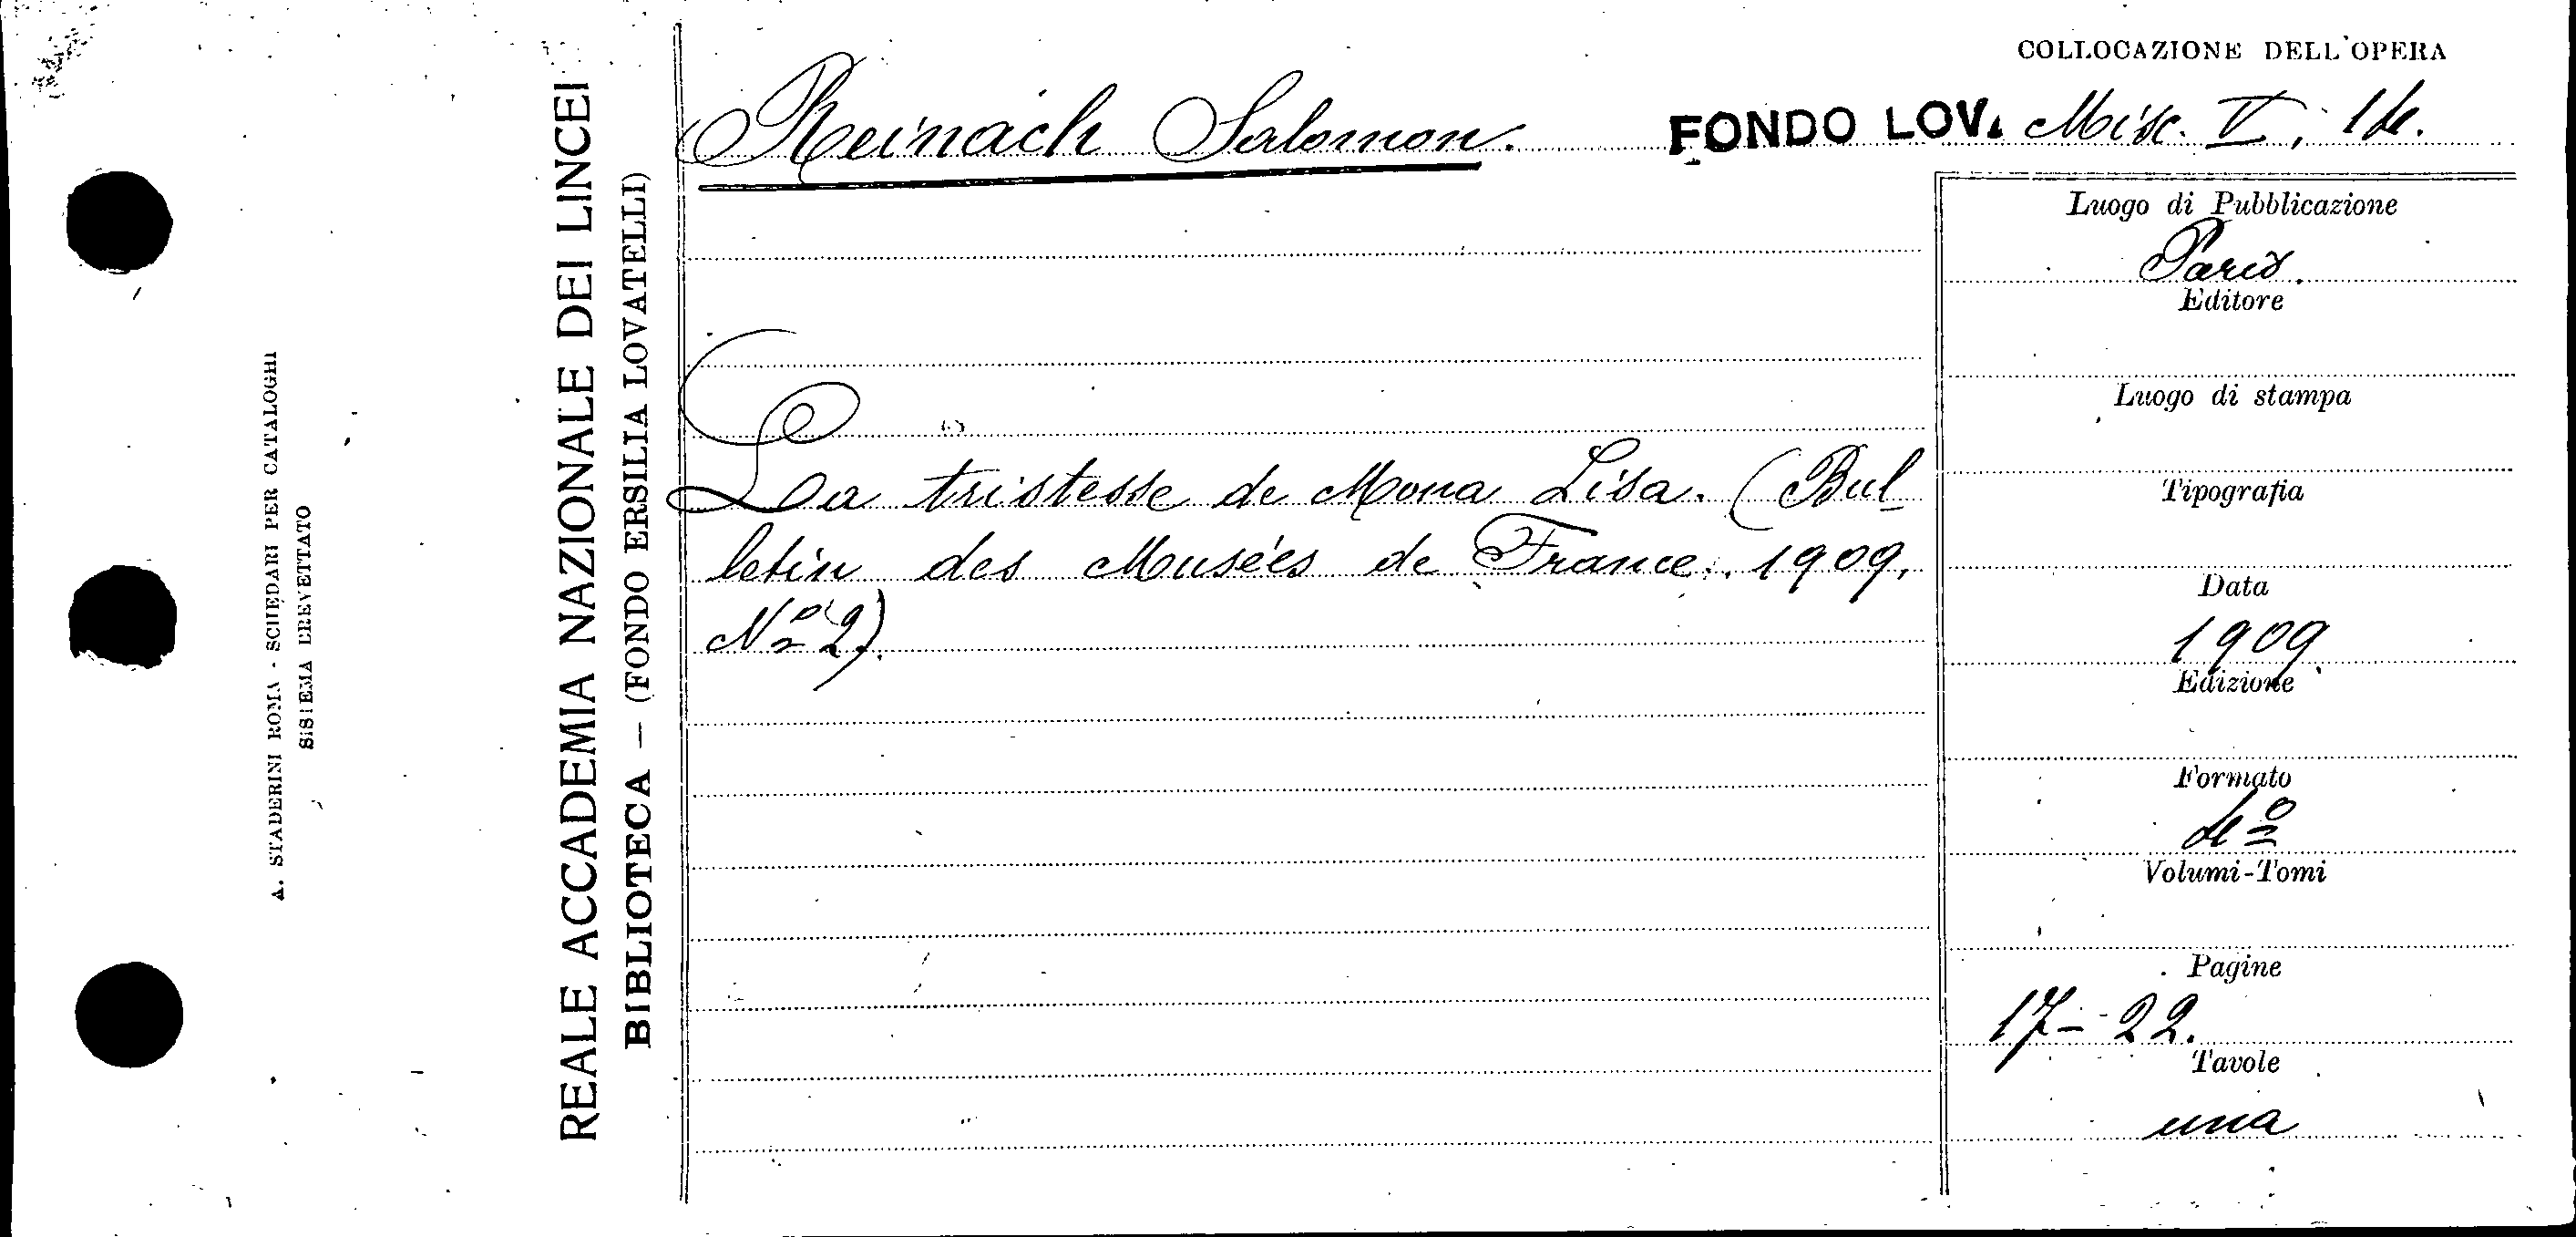 COLLOCAZIONE DELL'OPERA
Reinach Salomon.
FONDO LOV. Misc. V, 14.
REALE ACCADEMIA NAZIONALE DEI LINCEI
BIBLIOTECA — (FONDO ERSILIA LOVATELLI)
A. STADERINI ROMA - SCHEDARI PER CATALOGHI
SISTEMA BREVETTATO
La tristesse de Mona Lisa. (Bul-
letin des Musées de France. 1909.
Nº 2).
Luogo di Pubblicazione
Paris.
Editore
Luogo di stampa
Tipografia
Data
1909.
Edizione
Formato
4º
Volumi-Tomi
Pagine
17-22.
Tavole
una